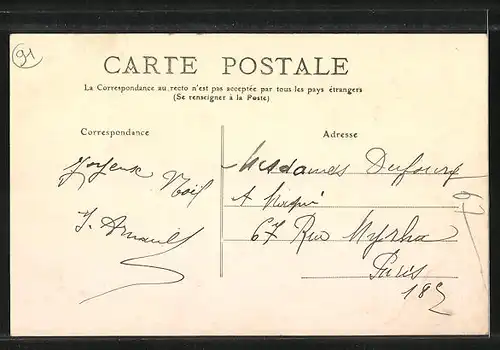 91
CARTE POSTALE
La Correspondance au recto n'est pas acceptée par tous les pays étrangers
(Se renseigner à la Poste)
Correspondance
Adresse
Joyeux Noël
J. Arnault
Mesdames Dufourg
et
67 Rue Myrha
Paris
18e